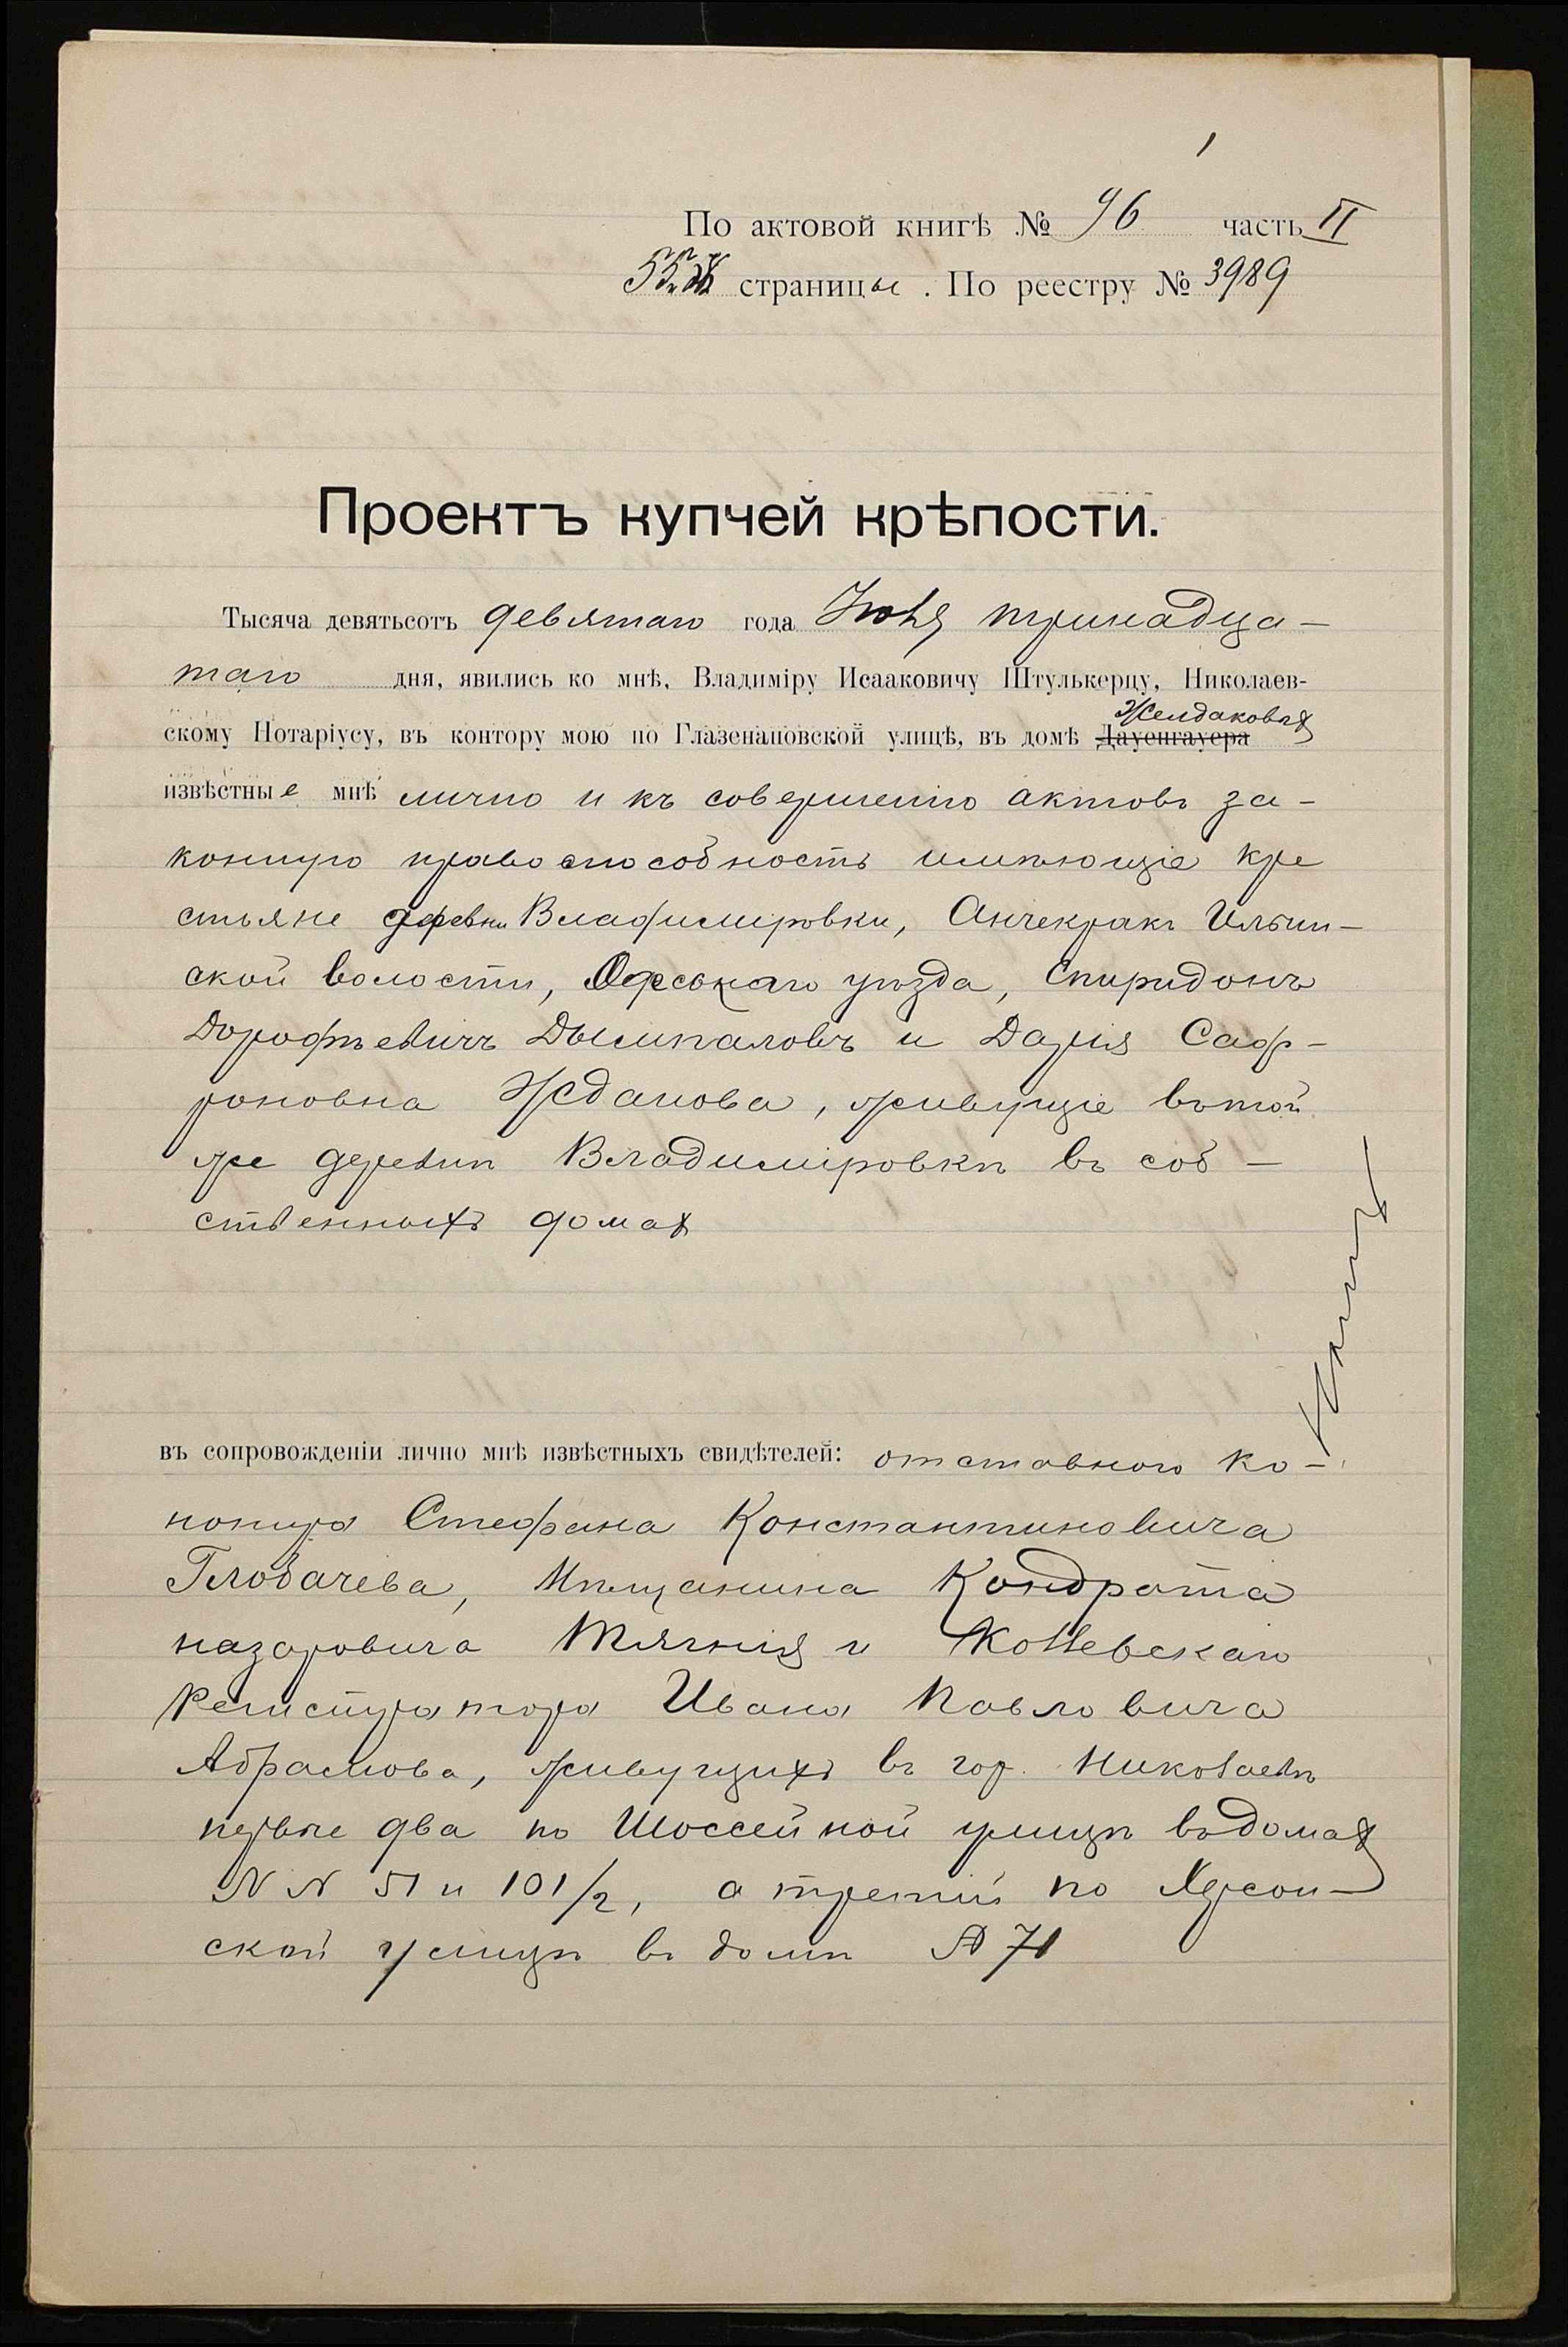 1
По актовой книгѣ № 96 часть II
55 страницы. По реестру № 3989
Проектъ купчей крѣпости.
Тысяча девятьсотъ девятаго года Іюня тринадца-
таго дня, явились ко мнѣ, Владиміру Исааковичу Штулькерцу, Николаев-
Желдаковыхъ
скому Нотаріусу, въ контору мою по Глазенаповской улицѣ, въ домѣ Дауенгауера
извѣстные мнѣ лично и къ совершенію актовъ за-
конную правоспособность имѣющіе кре
стьяне деревни Владиміровки, Анчекракъ Ильин-
ской волости, уѣзда, Спиридонъ
Дорофѣевичъ Дымпаловъ и Дарія Саф-
роновна Жданова, живущіе въ той
же деревнѣ Владиміровкѣ въ соб-
ственныхъ домахъ
въ сопровожденіи лично мнѣ извѣстныхъ свидѣтелей: отставного ка-
нонира Стефана Константиновича
Глобачева, Мѣщанина Кондрата
Назаровича Тягния и Коллежскаго
Регистратора Ивана Павловича
Абрамова, живущихъ въ гор. Николаевѣ
первые два по Шоссейной улицѣ въ домахъ
N N 51 и 101/2, а третій по Херсон-
ской улицѣ въ домѣ № 71